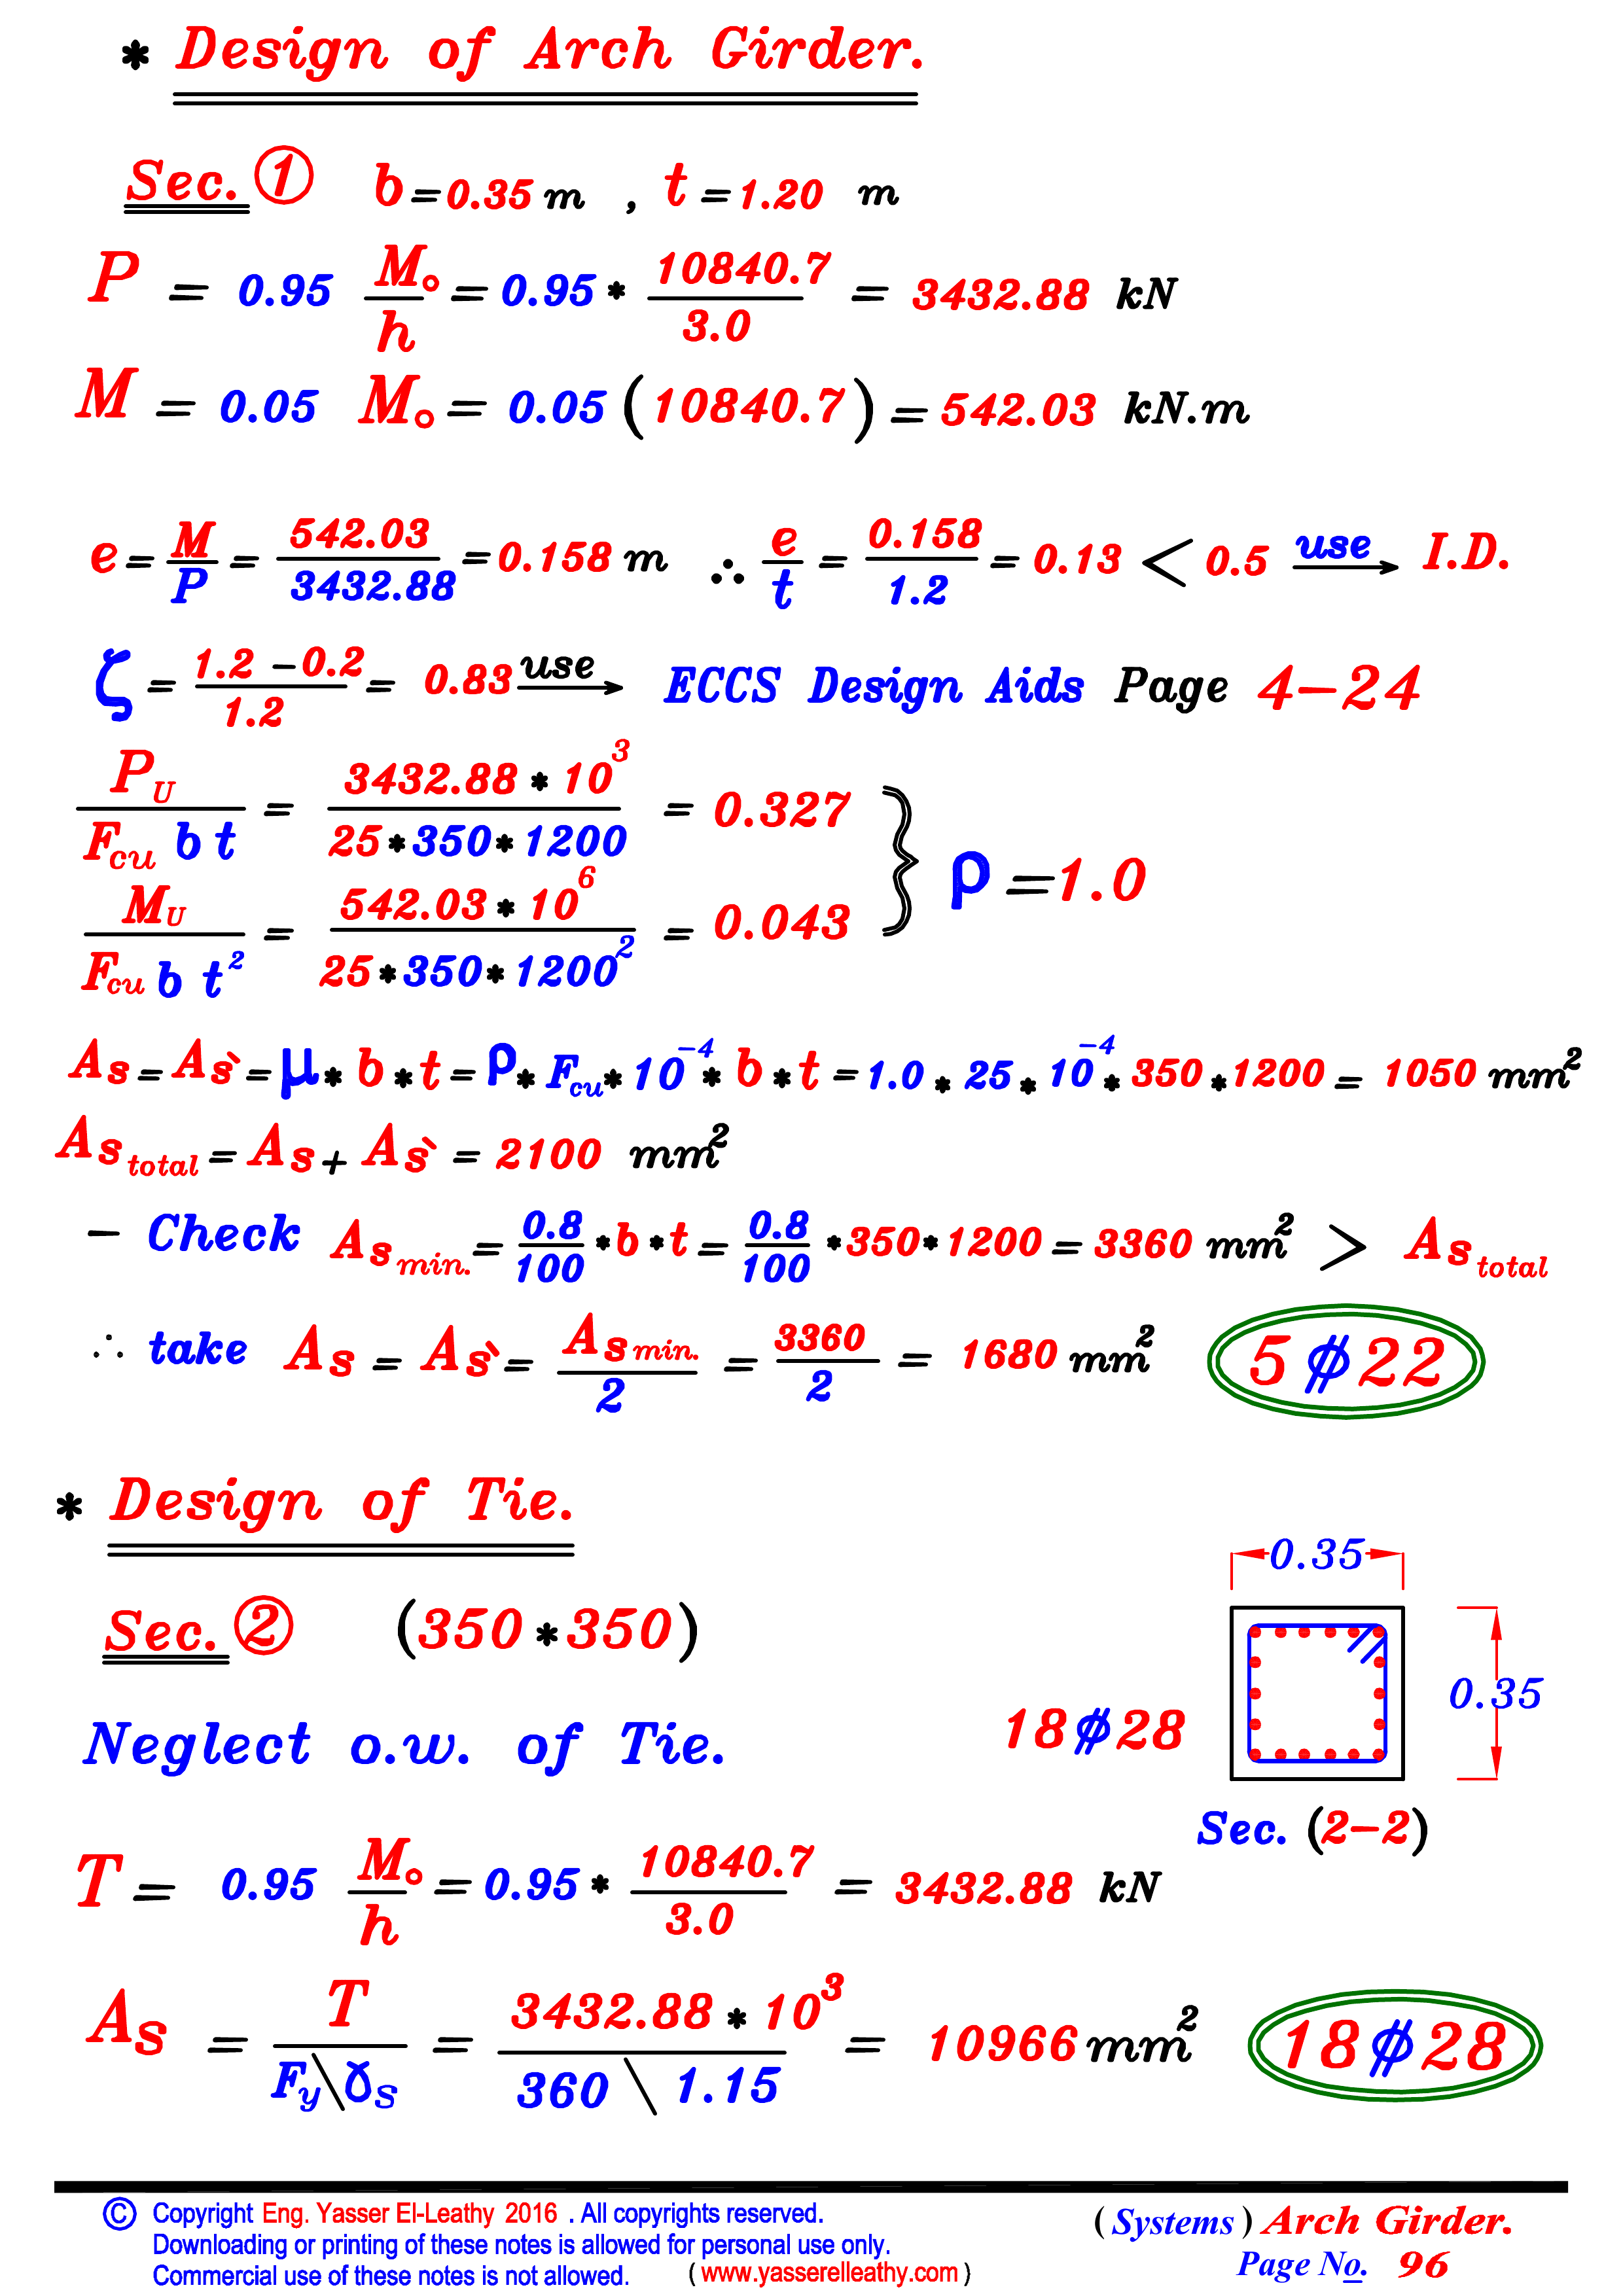 * Design of Arch Girder.
Sec. ① b = 0.35 m , t = 1.20 m
P = 0.95 M₀/h = 0.95 * 10840.7/3.0 = 3432.88 kN
M = 0.05 M₀ = 0.05 (10840.7) = 542.03 kN.m
e = M/P = 542.03/3432.88 = 0.158 m ∴ e/t = 0.158/1.2 = 0.13 < 0.5 use→ I.D.
ζ = 1.2 - 0.2/1.2 = 0.83 use→ ECCS Design Aids Page 4-24
P_U/F_cu b t = 3432.88 * 10³/25 * 350 * 1200 = 0.327
ρ = 1.0
M_U/F_cu b t² = 542.03 * 10⁶/25 * 350 * 1200² = 0.043
As = As` = μ * b * t = ρ * F_cu * 10⁻⁴ * b * t = 1.0 * 25 * 10⁻⁴ * 350 * 1200 = 1050 mm²
As total = As + As` = 2100 mm²
- Check As min. = 0.8/100 * b * t = 0.8/100 * 350 * 1200 = 3360 mm² > As total
∴ take As = As` = As min./2 = 3360/2 = 1680 mm² 5 ⌀ 22
* Design of Tie.
Sec. ② (350 * 350)
0.35
0.35
Neglect o.w. of Tie.
18 ⌀ 28
Sec. (2-2)
T = 0.95 M₀/h = 0.95 * 10840.7/3.0 = 3432.88 kN
As = T/F_y\γ_S = 3432.88 * 10³/360 \ 1.15 = 10966 mm² 18 ⌀ 28
© Copyright Eng. Yasser El-Leathy 2016 . All copyrights reserved.
Downloading or printing of these notes is allowed for personal use only.
Commercial use of these notes is not allowed. ( www.yasserelleathy.com )
( Systems ) Arch Girder.
Page No. 96